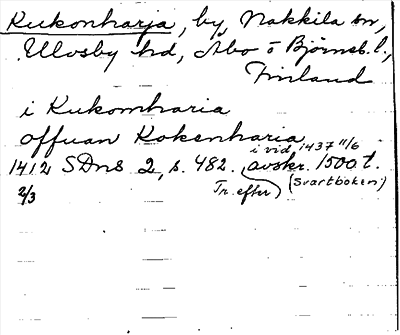 Kukonharja, by, Nakkila sn,
Ulvsby hd, Åbo o Björneb. l.,
Finland
i Kukomharia
offuan Kokenharia
i vid. 1437 11/6
1412 SDns 2, s. 482. avskr. 1500 t.
2/3 Tr. efter (Svartboken)